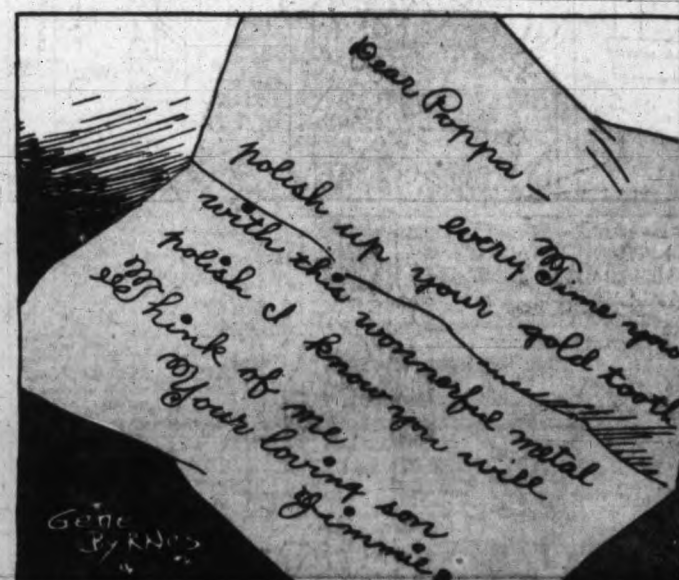 Dear Poppa —
every Time you
polish up your gold tooth
with this wonnerful metal
polish I know you will
Think of me
Your loving son
Jimmie.
Gene
Byrnes